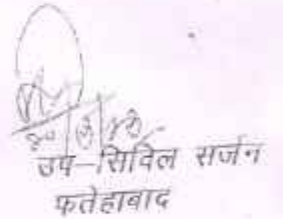 उप-सिविल सर्जन
फतेहाबाद